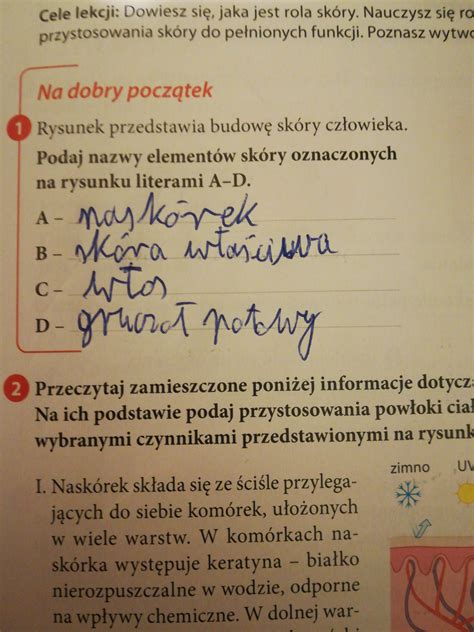 Cele lekcji: Dowiesz się, jaka jest rola skóry. Nauczysz się ro
przystosowania skóry do pełnionych funkcji. Poznasz wytwo
Na dobry początek
1 Rysunek przedstawia budowę skóry człowieka.
Podaj nazwy elementów skóry oznaczonych
na rysunku literami A–D.
A – naskórek
B – skóra właściwa
C – włos
D – gruczoł potowy
2 Przeczytaj zamieszczone poniżej informacje dotycz
Na ich podstawie podaj przystosowania powłoki ciał
wybranymi czynnikami przedstawionymi na rysunk
zimno UV
I. Naskórek składa się ze ściśle przylega-
jących do siebie komórek, ułożonych
w wiele warstw. W komórkach na-
skórka występuje keratyna – białko
nierozpuszczalne w wodzie, odporne
na wpływy chemiczne. W dolnej war-